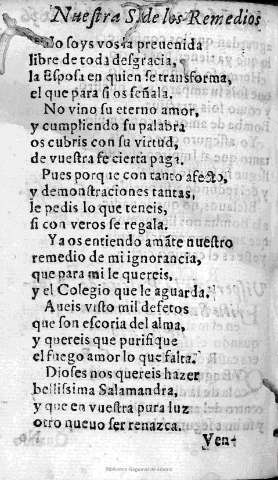 Nuestra S. de los Remedios
solo soys vos la preuenida
libre de toda desgracia,
la Esposa en quien se transforma,
el que para si os señala.
No vino su eterno amor,
y cumpliendo su palabra
os cubris con su virtud,
de vuestra fe cierta paga.
Pues porque con tanto afecto,
y demonstraciones tantas,
le pedis lo que teneis,
si con veros se regala.
Ya os entiendo amãte nuestro
remedio de mi ignorancia,
que para mi le quereis,
y el Colegio que le aguarda.
Aueis visto mil defetos
que son escoria del alma,
y quereis que purifique
el fuego amor lo que falta.
Dioses nos quereis hazer
bellissima Salamandra,
y que en vuestra pura luz
otro nueuo ser renazca.
Ven-
Biblioteca Nacional de España